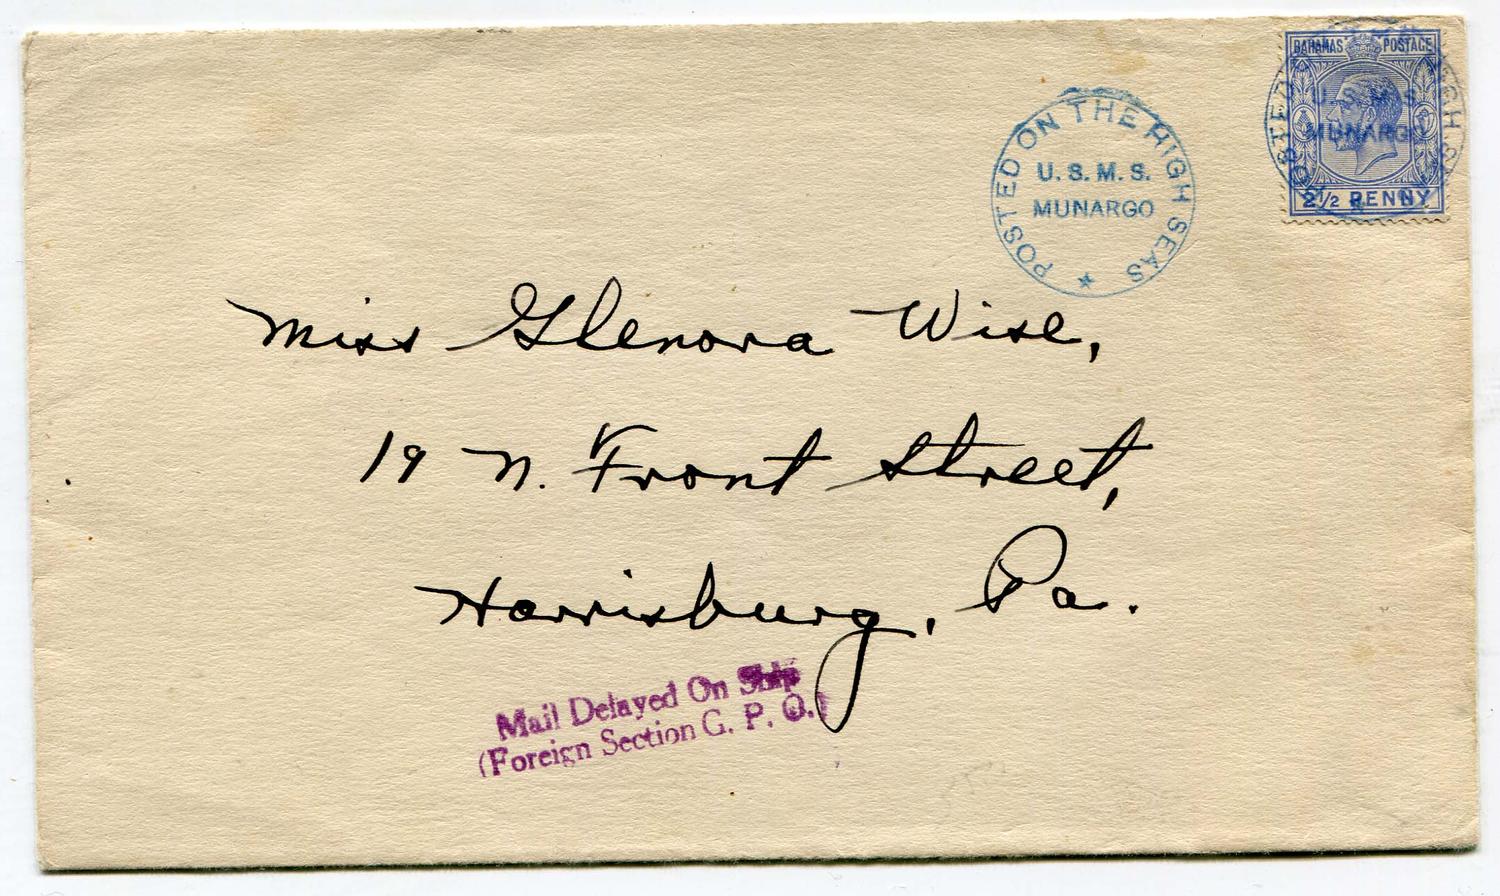 BAHAMAS POSTAGE
2½ PENNY
POSTED ON THE HIGH SEAS
U. S. M. S.
MUNARGO
POSTED ON THE HIGH SEAS
U. S. M. S.
MUNARGO
Miss Glenora Wise,
19 N. Front Street,
Harrisburg, Pa.
Mail Delayed On Ship
(Foreign Section G. P. O.)